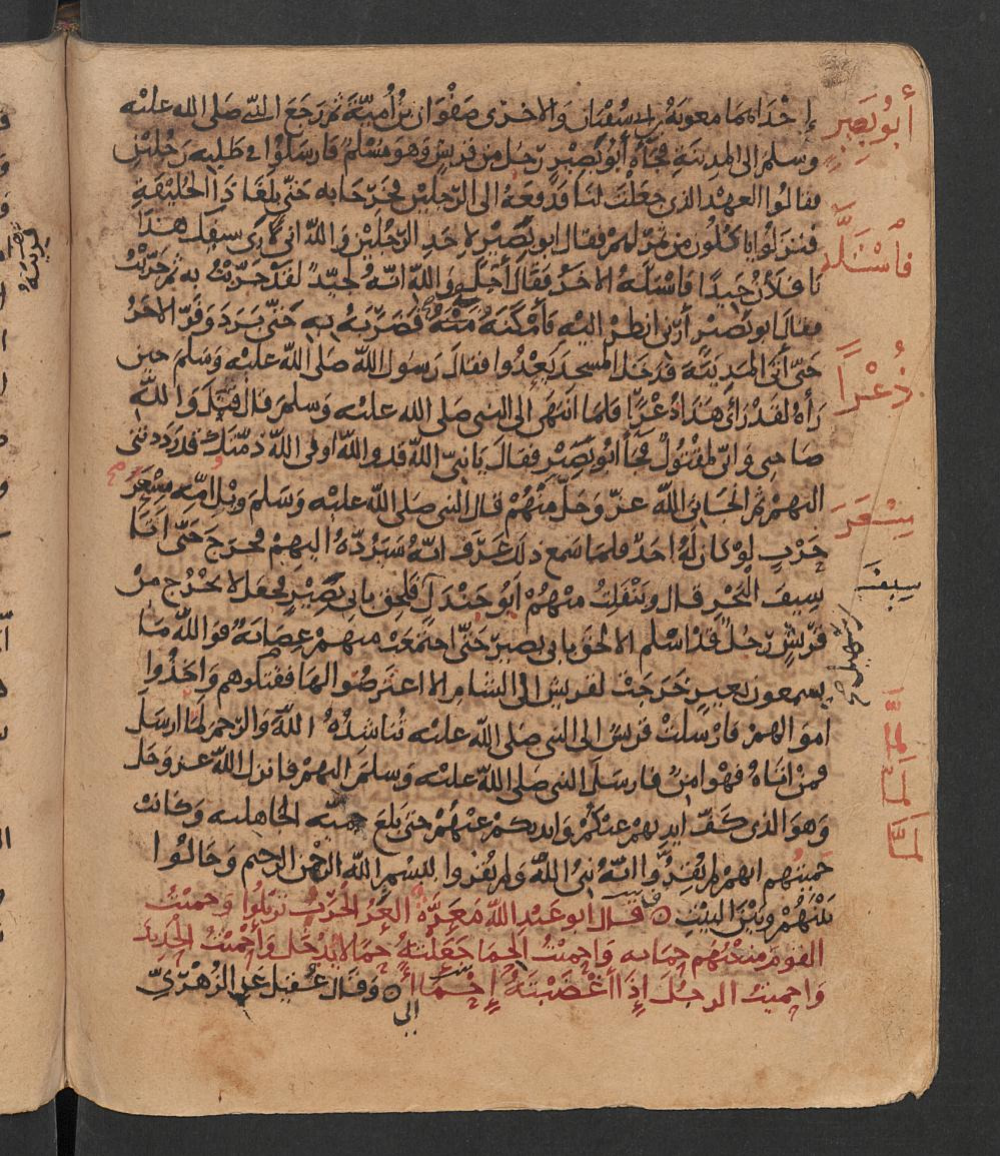 إحداهما معوية بن ابي سفيان والاخرى صفوان بن أمية ثم رجع النبي صلى الله عليه
وسلم الى المدينة فجاه أبو بصير رجل من قريش وهو مسلم فارسلوا في طلبه رجلين
فقالوا العهد الذي جعلت لنا فدفعه الى الرجلين فخرجا به حتى بلغا ذا الحليفة
فنزلوا ياكلون من تمر لهم فقال ابو بصير لاحد الرجلين والله اني لارى سيفك هذا
يا فلان جيدا فاستله الاخر فقال أجل والله انه لجيد لقد جربت به ثم جربت
فقال ابو بصير أرني انظر اليه فأمكنه منه فضربه به حتى برد وفر الاخر
حتى أتى المدينة فدخل المسجد يعدوا فقال رسول الله صلى الله عليه وسلم حين
رأه لقد رأى هذا ذعرا فلما انتهى الى النبي صلى الله عليه وسلم قال قتل والله
صاحبي واني لمقتول فجا أبو بصير فقال يا نبي الله قد والله اوفى الله ذمتك قد رددتني
اليهم ثم انجاني الله عز وجل منهم قال النبي صلى الله عليه وسلم ويل امه مسعر
حرب لو كان له احد فلما سمع ذلك عرف انه سيرده اليهم فخرج حتى اتا
سيف البحر قال وينفلت منهم أبو جندل فلحق بابي بصير فجعل لا يخرج من
قريش رجل قد اسلم الا لحق بابي بصير حتى اجتمعت منهم عصابة فوالله ما
يسمعون بعير خرجت لقريش الى الشام الا اعترضوا لها فقتلوهم واخذوا
اموالهم فارسلت قريش الى النبي صلى الله عليه تناشده الله والرحم لما ارسل
فمن اتاه فهو امن فارسل النبي صلى الله عليه وسلم اليهم فانزل الله عز وجل
وهو الذي كف ايديهم عنكم وايديكم عنهم حتى بلغ حمية الجاهلية وكانت
حميتهم انهم لم يقروا انه نبي الله ولم يقروا ببسم الله الرحمن الرحيم وحالوا
بينهم وبين البيت قال ابو عبد الله معرة العر الجرب تزيلوا وحميت
القوم منعتهم حماية واحميت الحما جعلته حما لا يدخل وأحميت الحديد
واحميت الرجل إذا أغضبته إحماا وقال عقيل عن الزهري
أبو بصير
فاستله
ذعرا
مسعر
سيف
بن سهيل
لما